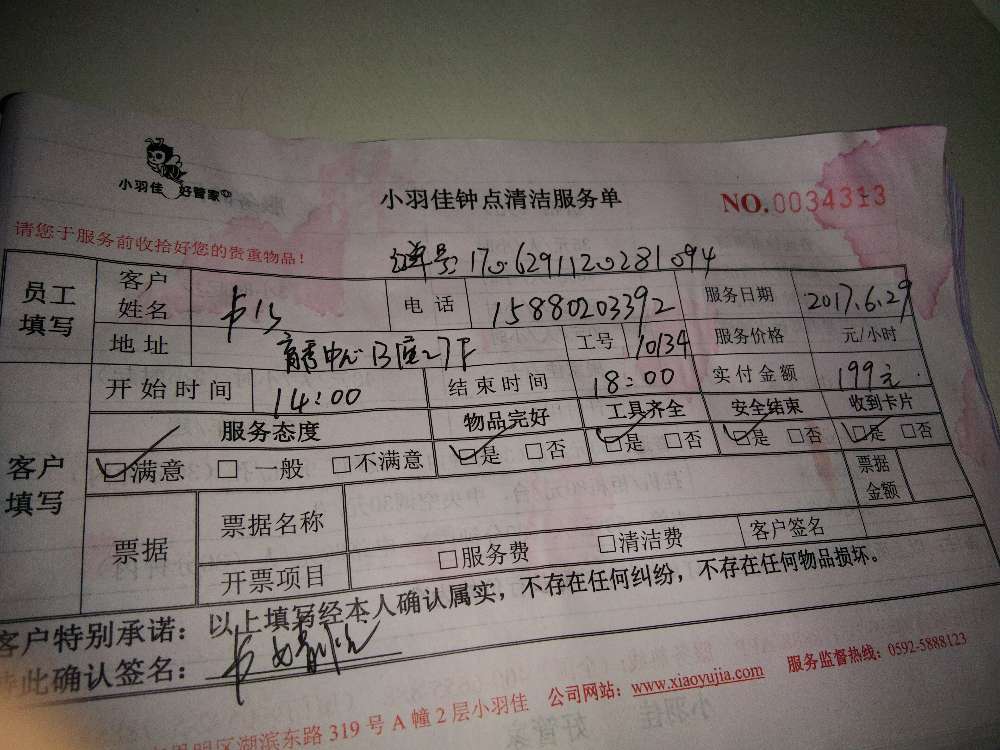 小羽佳 好管家
小羽佳钟点清洁服务单
NO.0034313
请您于服务前收拾好您的贵重物品!
单号:170629112028 1094
员工填写 客户姓名 电话 15880203392 服务日期 2017.6.29
地址 中心B座27F 工号 10134 服务价格 元/小时
客户填写 开始时间 14:00 结束时间 18:00 实付金额 199元
服务态度 物品完好 工具齐全 安全结束 收到卡片
☑满意 □一般 □不满意 ☑是 □否 ☑是 □否 ☑是 □否 ☑是 □否
票据 票据名称 票据金额
开票项目 □服务费 □清洁费 客户签名
客户特别承诺:以上填写经本人确认属实,不存在任何纠纷,不存在任何物品损坏。
此确认签名:
明区湖滨东路319号A幢2层小羽佳 公司网站:www.xiaoyujia.com 服务监督热线:0592-5888123